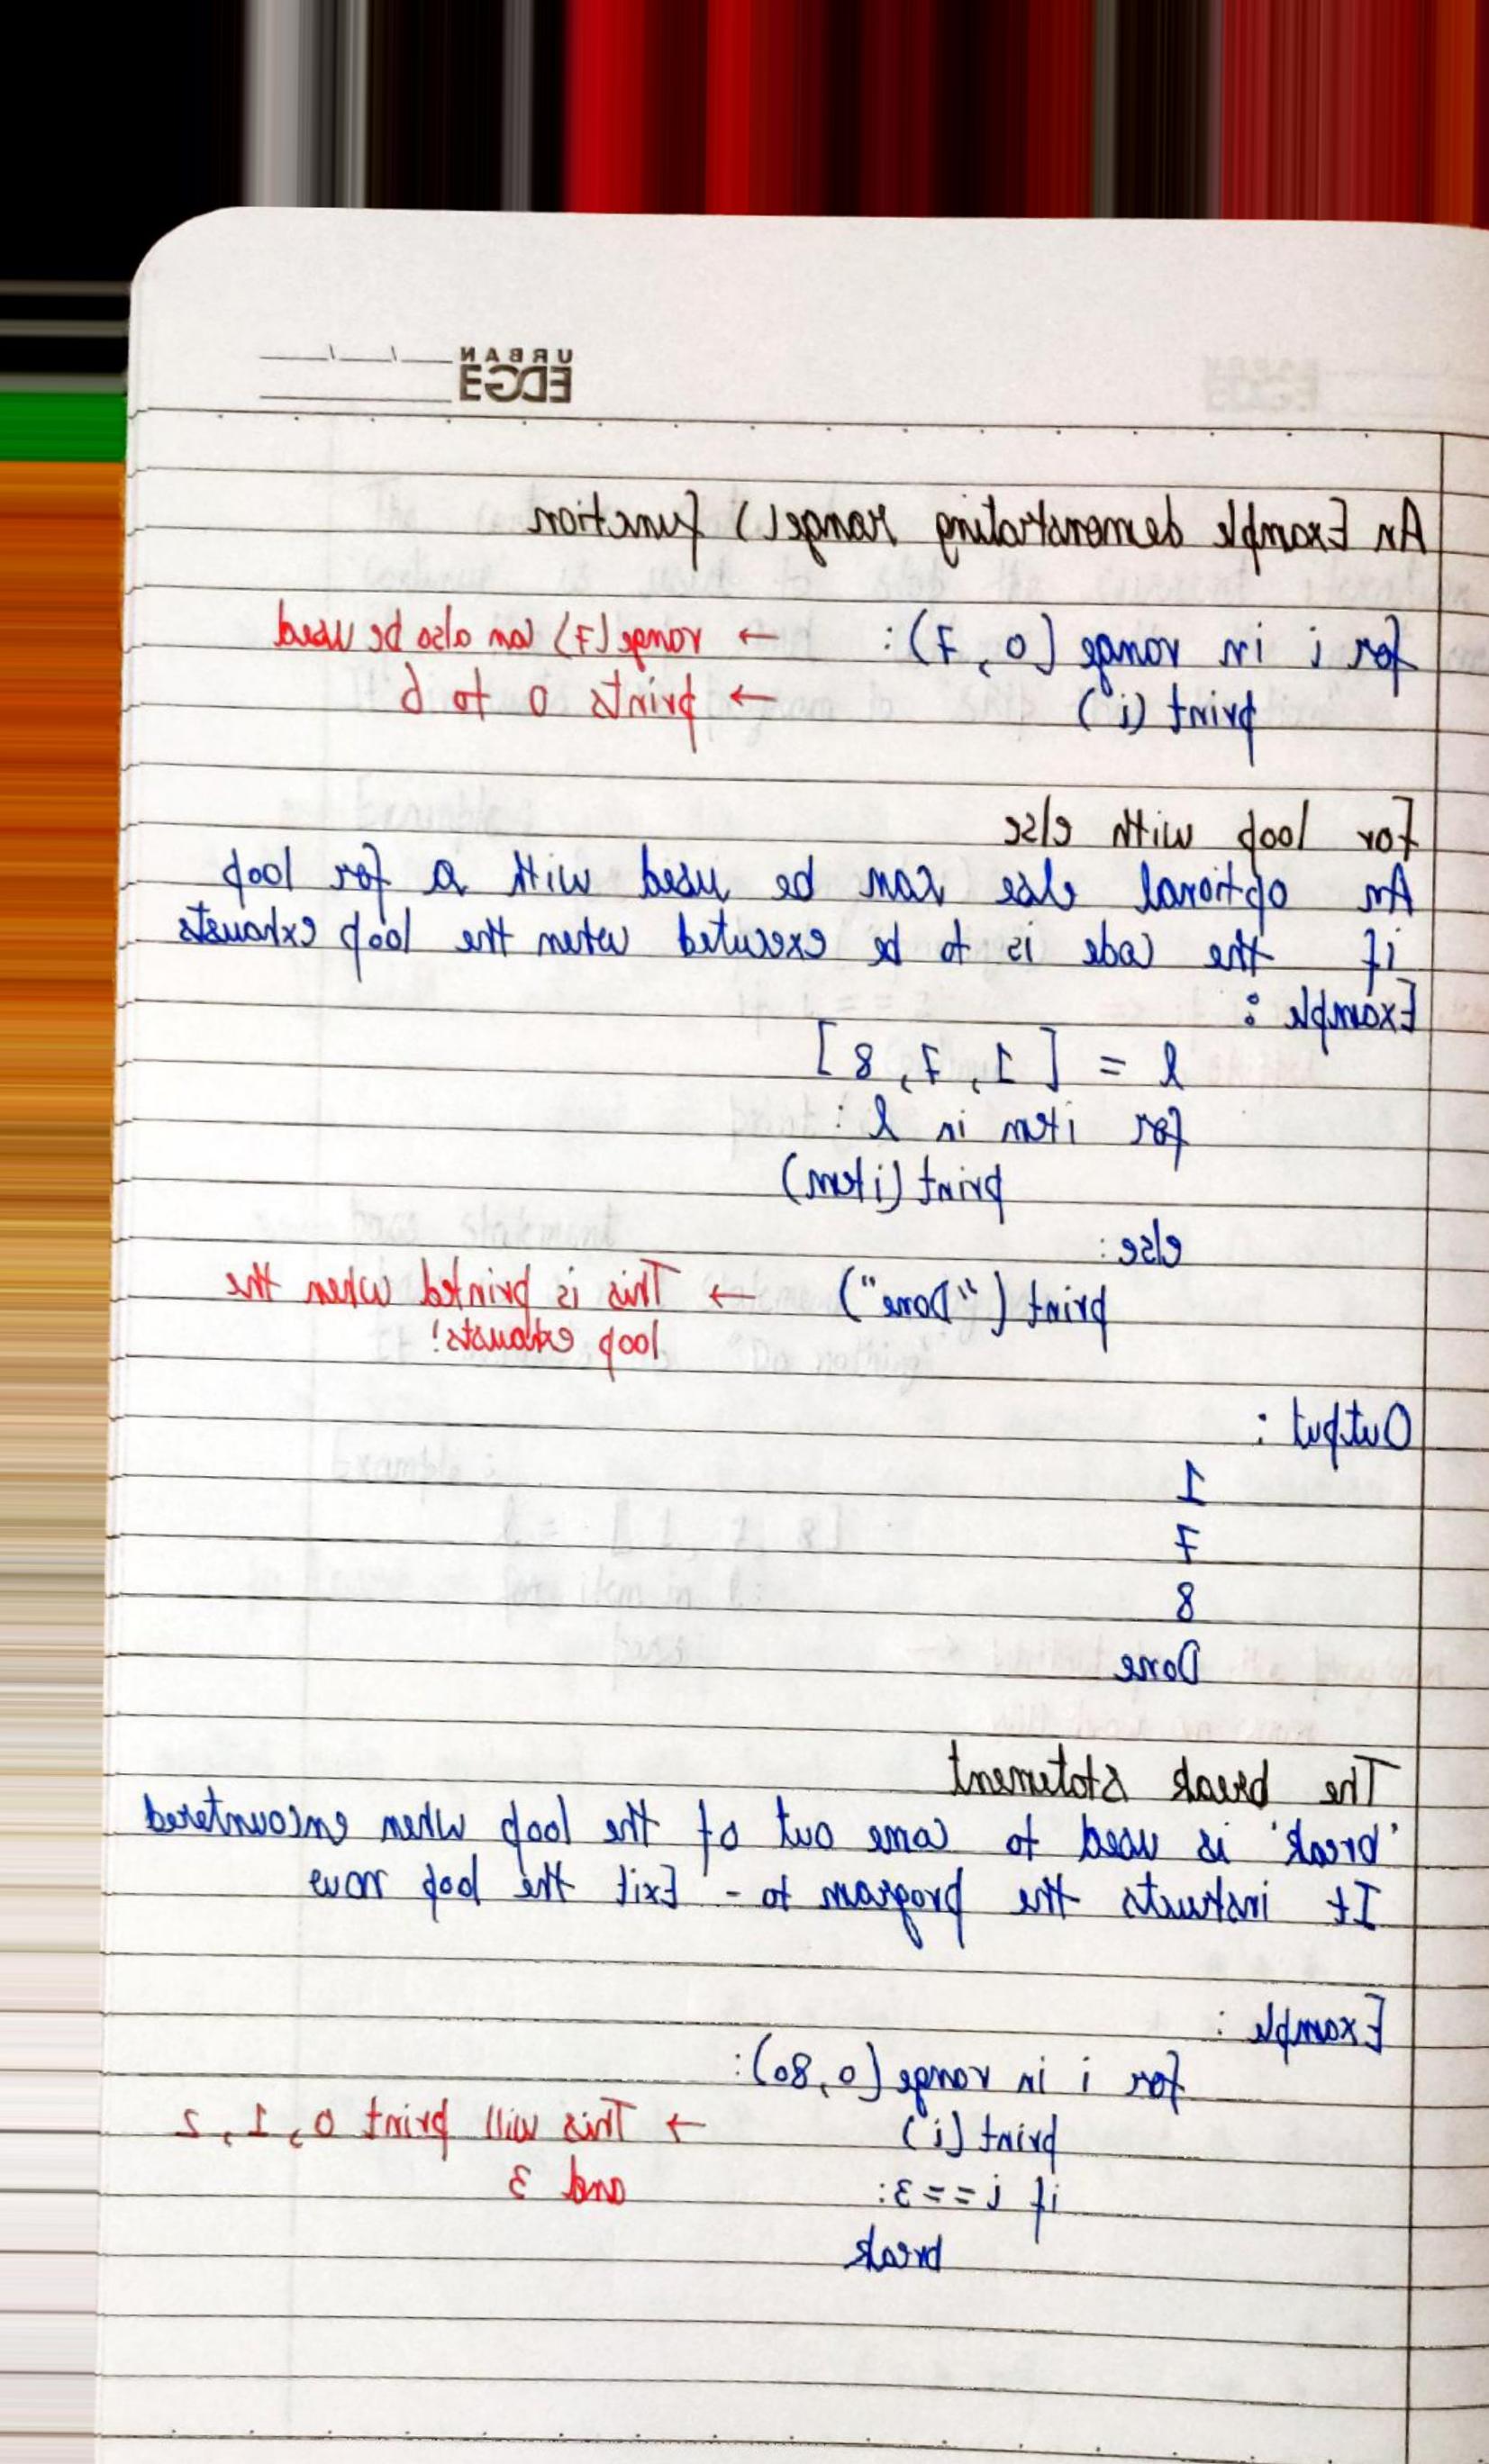 URBAN
EDGE
An Example demonstrating range() function
for i in range (0, 7): ← range(7) can also be used
print (i) ← prints 0 to 6
For loop with else
An optional else can be used with a for loop
if the code is to be executed when the loop exhausts
Example :
l = [ 1, 7, 8 ]
for item in l :
print (item)
else :
print ( "Done" ) → This is printed when the
loop exhausts!
Output :
1
7
8
Done
The break statement
'break' is used to come out of the loop when encountered
It instructs the program to - Exit the loop now
Example :
for i in range (0, 80):
print (i) → This will print 0, 1, 2
if i == 3: and 3
break